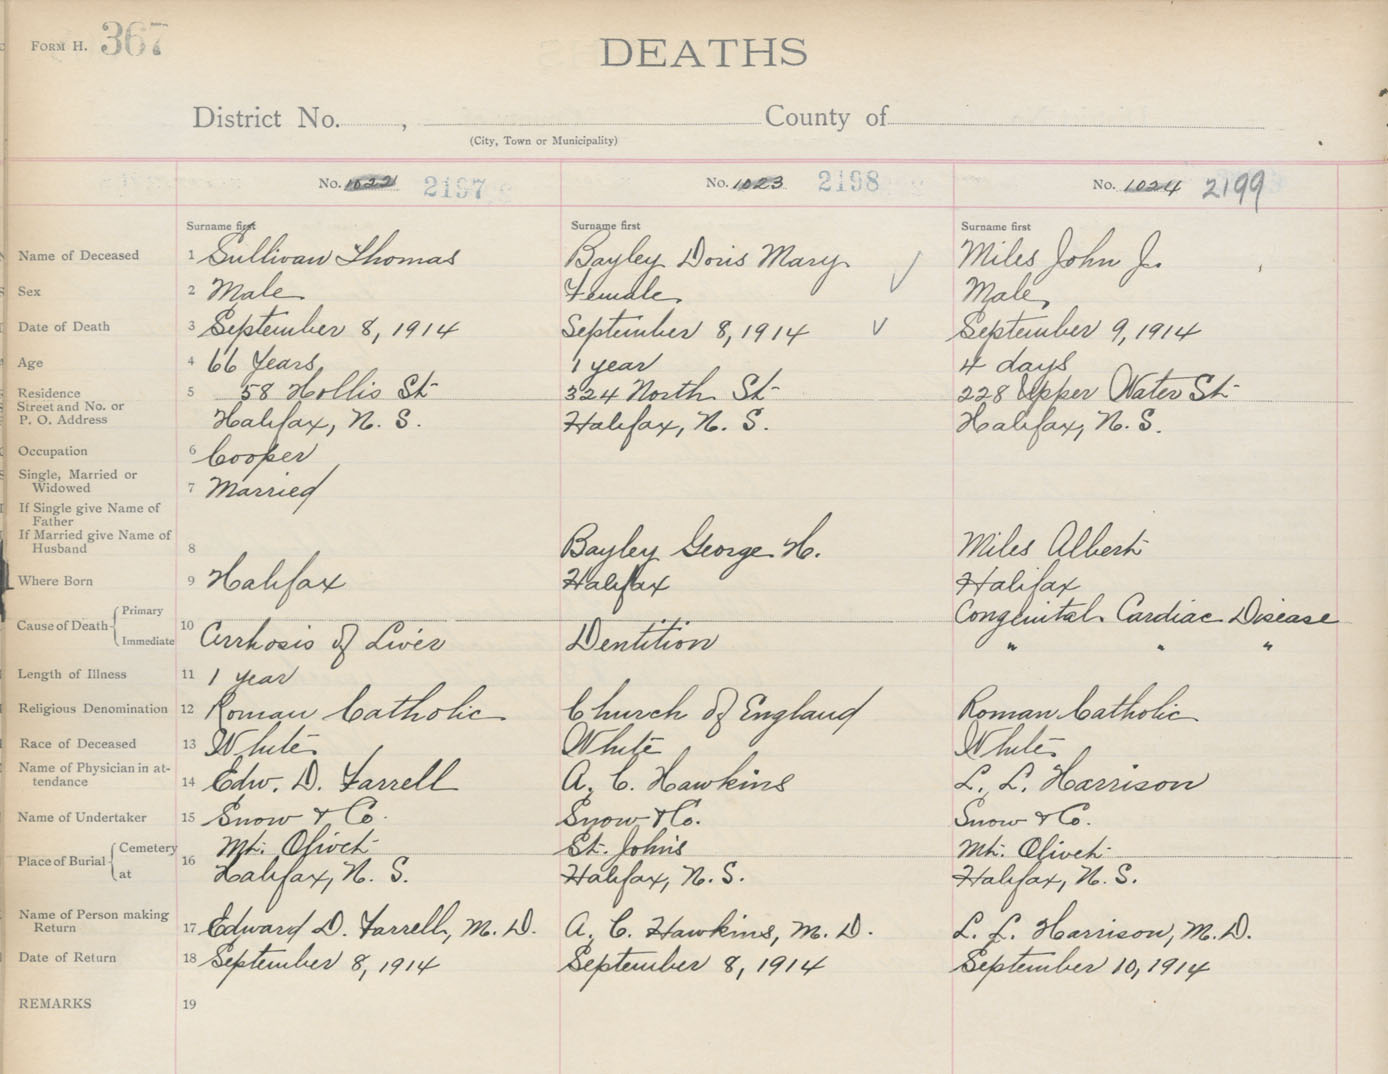 FORM H. 367
DEATHS
District No. , County of
(City, Town or Municipality)
No. 1022 2197 No. 1023 2198 No. 1024 2199
Surname first Surname first Surname first
Name of Deceased 1 Sullivan Thomas Bayley Doris Mary Miles John J.
Sex 2 Male Female Male
Date of Death 3 September 8, 1914 September 8, 1914 September 9, 1914
Age 4 66 Years 1 year 4 days
Residence 5 58 Hollis St 324 North St 228 Upper Water St
Street and No. or
P. O. Address Halifax, N. S. Halifax, N. S. Halifax, N. S.
Occupation 6 Cooper
Single, Married or
Widowed 7 Married
If Single give Name of
Father
If Married give Name of
Husband 8 Bayley George H. Miles Albert
Where Born 9 Halifax Halifax Halifax
Cause of Death { Primary 10 Congenital Cardiac Disease
Immediate Cirrhosis of Liver Dentition " " "
Length of Illness 11 1 year
Religious Denomination 12 Roman Catholic Church of England Roman Catholic
Race of Deceased 13 White White White
Name of Physician in at-
tendance 14 Edw. D. Farrell A. C. Hawkins L. L. Harrison
Name of Undertaker 15 Snow & Co. Snow & Co. Snow & Co.
Place of Burial { Cemetery 16 Mt. Olivet St. John's Mt. Olivet
at Halifax, N. S. Halifax, N. S. Halifax, N. S.
Name of Person making
Return 17 Edward D. Farrell, M. D. A. C. Hawkins, M. D. L. L. Harrison, M. D.
Date of Return 18 September 8, 1914 September 8, 1914 September 10, 1914
REMARKS 19